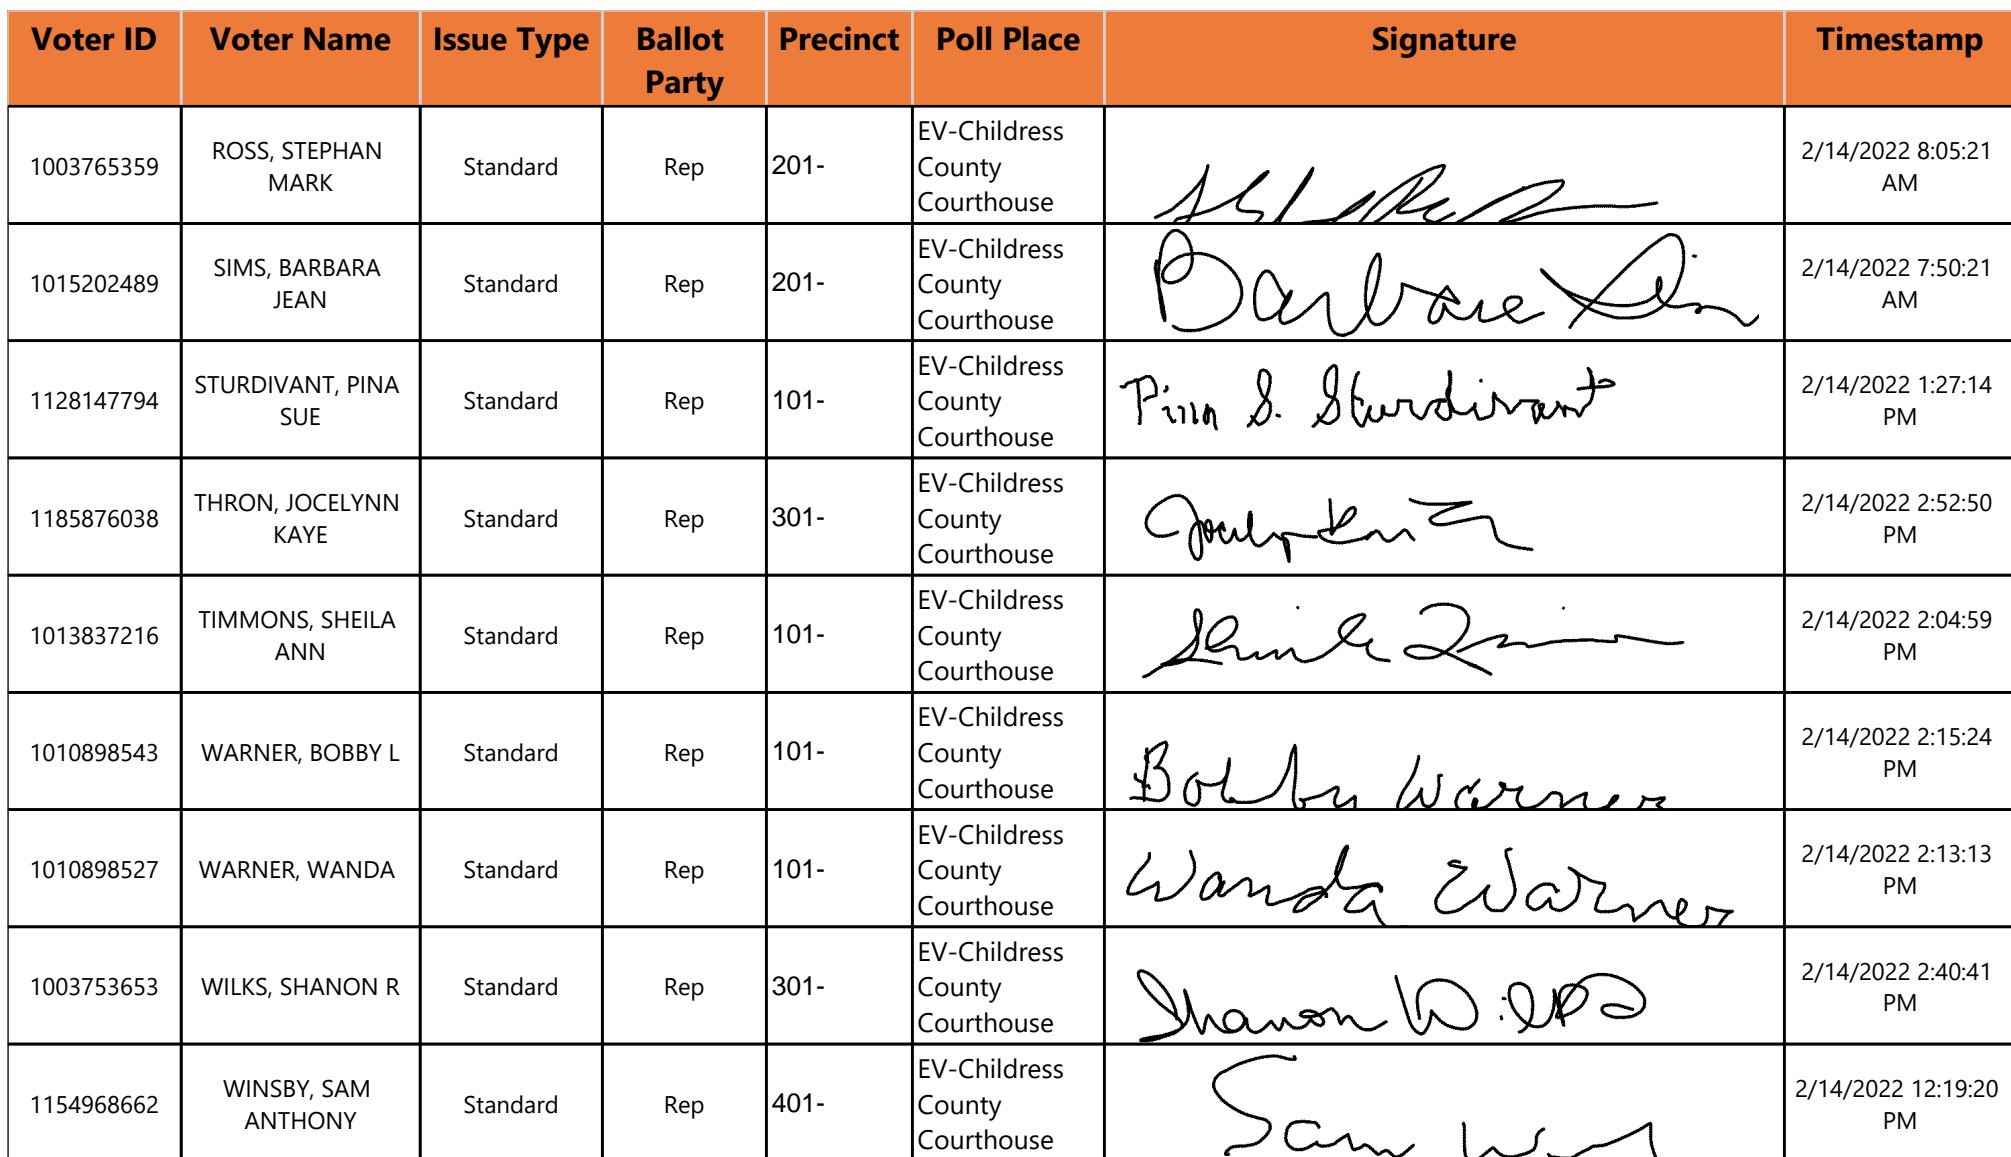 Voter ID Voter Name Issue Type Ballot Party Precinct Poll Place Signature Timestamp
1003765359 ROSS, STEPHAN MARK Standard Rep 201- EV-Childress County Courthouse 2/14/2022 8:05:21 AM
1015202489 SIMS, BARBARA JEAN Standard Rep 201- EV-Childress County Courthouse Barbara Sims 2/14/2022 7:50:21 AM
1128147794 STURDIVANT, PINA SUE Standard Rep 101- EV-Childress County Courthouse Pina S. Sturdivant 2/14/2022 1:27:14 PM
1185876038 THRON, JOCELYNN KAYE Standard Rep 301- EV-Childress County Courthouse 2/14/2022 2:52:50 PM
1013837216 TIMMONS, SHEILA ANN Standard Rep 101- EV-Childress County Courthouse 2/14/2022 2:04:59 PM
1010898543 WARNER, BOBBY L Standard Rep 101- EV-Childress County Courthouse Bobby Warner 2/14/2022 2:15:24 PM
1010898527 WARNER, WANDA Standard Rep 101- EV-Childress County Courthouse Wanda Warner 2/14/2022 2:13:13 PM
1003753653 WILKS, SHANON R Standard Rep 301- EV-Childress County Courthouse Shanon Wilks 2/14/2022 2:40:41 PM
1154968662 WINSBY, SAM ANTHONY Standard Rep 401- EV-Childress County Courthouse Sam 2/14/2022 12:19:20 PM